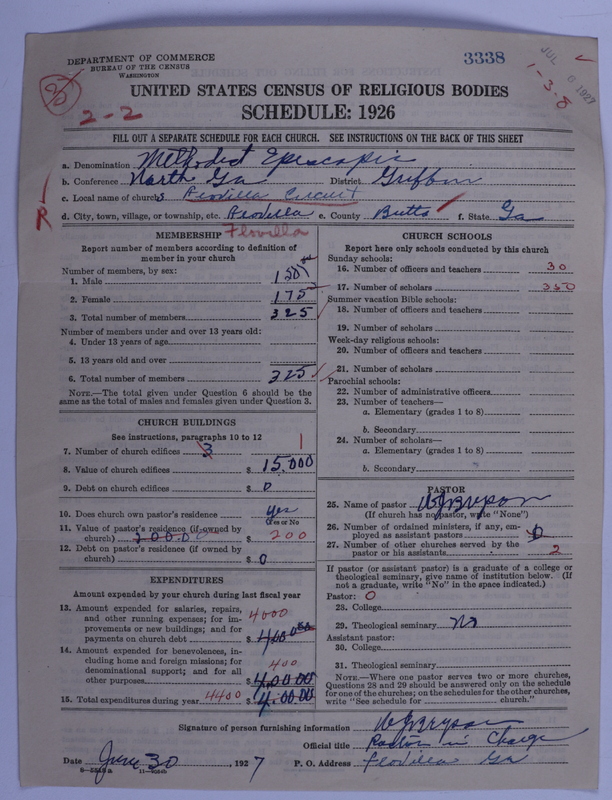 DEPARTMENT OF COMMERCE
BUREAU OF THE CENSUS
WASHINGTON
3338
JUL 6 1927
1-3-8
2-2
UNITED STATES CENSUS OF RELIGIOUS BODIES
SCHEDULE: 1926
FILL OUT A SEPARATE SCHEDULE FOR EACH CHURCH. SEE INSTRUCTIONS ON THE BACK OF THIS SHEET
a. Denomination Methodist Episcopic
b. Conference North Ga District Griffin
c. Local name of church Flovilla Circuit
R
d. City, town, village, or township, etc. Flovilla e. County Butts f. State Ga
Flovilla
MEMBERSHIP
Report number of members according to definition of member in your church
Number of members, by sex:
1. Male 150
2. Female 175
3. Total number of members 325
Number of members under and over 13 years old:
4. Under 13 years of age
5. 13 years old and over
6. Total number of members 325
NOTE.—The total given under Question 6 should be the same as the total of males and females given under Question 3.
CHURCH BUILDINGS
See instructions, paragraphs 10 to 12
7. Number of church edifices 3 1
8. Value of church edifices $ 15,000
9. Debt on church edifices $ 0
10. Does church own pastor's residence yes
(Yes or No)
11. Value of pastor's residence (if owned by church) $ 200
12. Debt on pastor's residence (if owned by church) $ 0
EXPENDITURES
Amount expended by your church during last fiscal year
13. Amount expended for salaries, repairs, and other running expenses; for improvements or new buildings; and for payments on church debt $ 4000
14. Amount expended for benevolences, including home and foreign missions; for denominational support; and for all other purposes $ 400
15. Total expenditures during year 4400 $
CHURCH SCHOOLS
Report here only schools conducted by this church
Sunday schools:
16. Number of officers and teachers 30
17. Number of scholars 350
Summer vacation Bible schools:
18. Number of officers and teachers
19. Number of scholars
Week-day religious schools:
20. Number of officers and teachers
21. Number of scholars
Parochial schools:
22. Number of administrative officers
23. Number of teachers—
a. Elementary (grades 1 to 8)
b. Secondary
24. Number of scholars—
a. Elementary (grades 1 to 8)
b. Secondary
PASTOR
25. Name of pastor
(If church has no pastor, write "None")
26. Number of ordained ministers, if any, employed as assistant pastors 0
27. Number of other churches served by the pastor or his assistants 2
If pastor (or assistant pastor) is a graduate of a college or theological seminary, give name of institution below. (If not a graduate, write "No" in the space indicated.)
Pastor: 0
28. College
29. Theological seminary No
Assistant pastor:
30. College
31. Theological seminary
NOTE.—Where one pastor serves two or more churches, Questions 28 and 29 should be answered only on the schedule for one of the churches; on the schedules for the other churches, write "See schedule for church."
Signature of person furnishing information
Official title Pastor in Charge
Date June 30, 1927 P. O. Address Flovilla Ga